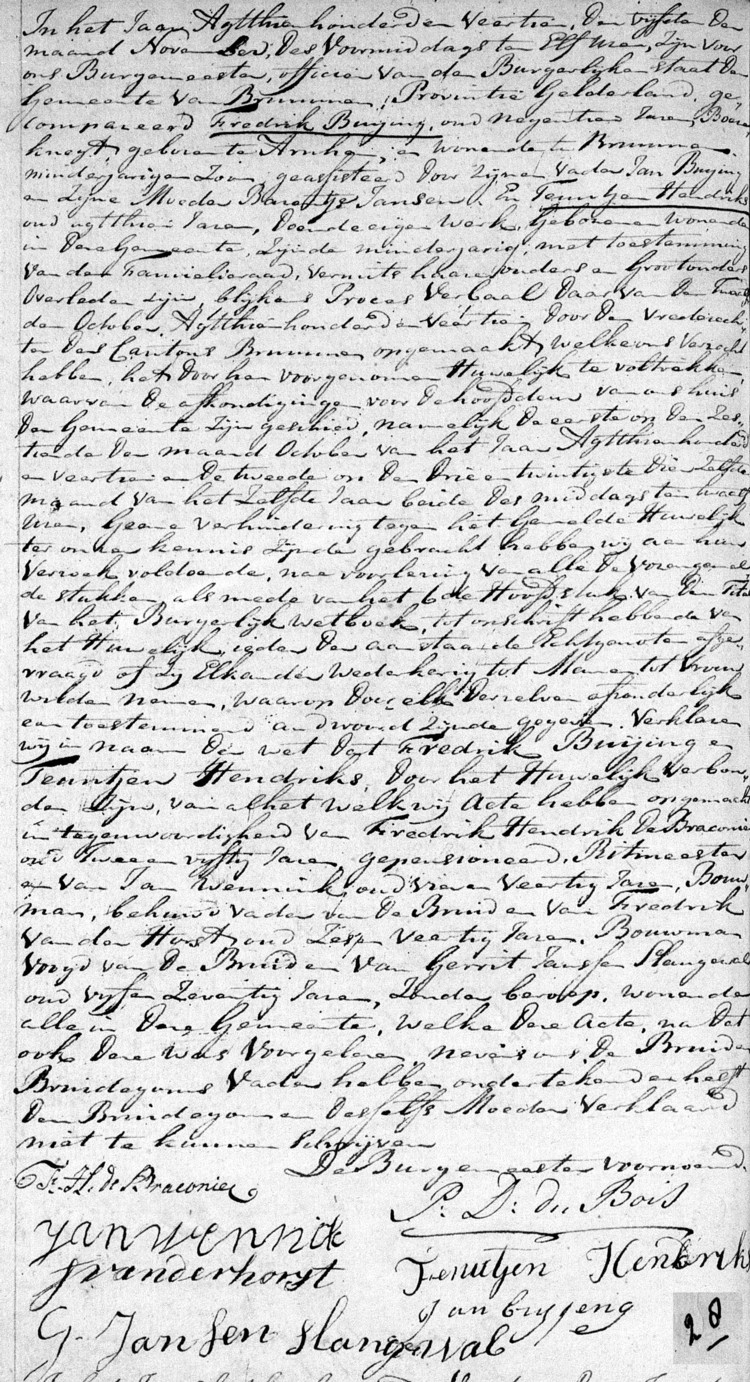 In het Jaar Agtthien honderd en Veertien, Den vijfden Der
maand November, Des Voormiddags ten Elf Uren, Zijn voor
ons Burgemeester, officier van den Burgerlyken staat Der
Gemeente van Brummen, Provintie Gelderland, ge-
compareerd Fredrik Buijing, oud negentien Jaren, Boere
knegt, geboren te Arnhem, en wonende te Brummen
minderjarigen Zoon, geassisteerd door Zijnen Vader Jan Buijing
en Zijne Moeder Barentje Jansen. En Teuntjen Hendriks
oud agtthien Jaren, Doende eigen werk, Geboren en wonende
in Deze Gemeente, Zijnde minderjarig, met toestemming
van den Familieraad, vermits haare ouders en Grootouders
Overleden zijn, blijkens Proces Verbaal Daar van Den
den October Agtthien honderd en Veertien Door Den Vrederech-
ter Des Cantons Brummen opgemaakt, welke ons Verzocht
hebben, het Door hen voorgenomen Huwelijk te voltrekken
waarvan De afkondigingen voor De hoofddeur van ons huis
Der Gemeente Zijn geschied, namelijk De eerste op Den Zes-
tiende Der maand October van het Jaar Agtthien honderd
en Veertien en De tweede op Den Drie en twintigste Die Zelfde
maand van het Zelfde Jaar beide Des middags ten twaalf
Uren, Geene verhindering tegen het Gemelde Huwelijk
ter onzer kennis Zijnde gebracht hebben wij aan hun
Verzoek voldoende, na voorlezing van alle De Vorengemel
de stukken, als mede van het 6de Hoofdstuk van Den Titel
van het Burgerlijk Wetboek, tot opschrift hebbende van
het Huwelijk, ieder Der aanstaande Echtgenoten afge-
vraagd of Zy Elkander Wederkerig tot Man en tot Vrouw
wilden nemen, waarop Door elk Derzelven afzonderlijk
een toestemmend andwoord Zijnde gegeven. Verklaren
wij in naam Der wet Dat Fredrik Buijing en
Teuntjen Hendriks, Door het Huwelijk Verbon-
den Zijn, van al het Welk wij Acte hebben opgemaakt
in tegenwoordigheid van Fredrik Hendrik De Braconier
oud Twee en vijftig Jaren, gepensioneerd Ritmeester
en van Jan Wennink, oud vier en Veertig Jaren, Bouw-
man, behuwd vader van De Bruid en Van Fredrik
van der Horst, oud Zes en Veertig Jaren, Bouwman
Voogd van De Bruid en Van Gerrit Janssen Slangewal
oud vijf en Zeventig Jaren, Zonder beroep, wonende
alle in Deze Gemeente, Welke Deze Acte, na Dat
ook Deze Was Voorgelezen, nevens ons, De Bruid en
Bruidegoms Vader hebben ondertekend en heeft
Den Bruidegom en Deszelfs Moeder Verklaard
niet te kunnen Schrijven
De Burgemeester voornoemd
F. H. de Braconier
P: D: du Bois
JAN WENNIK
fvanderhorst
Teuntjen Henbriks
Jan buyjeng
G. Jansen slangewal
28